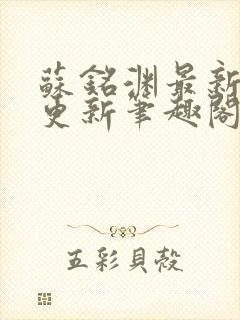 蘇銘淵最新
更新筆趣閣
五彩貝殼